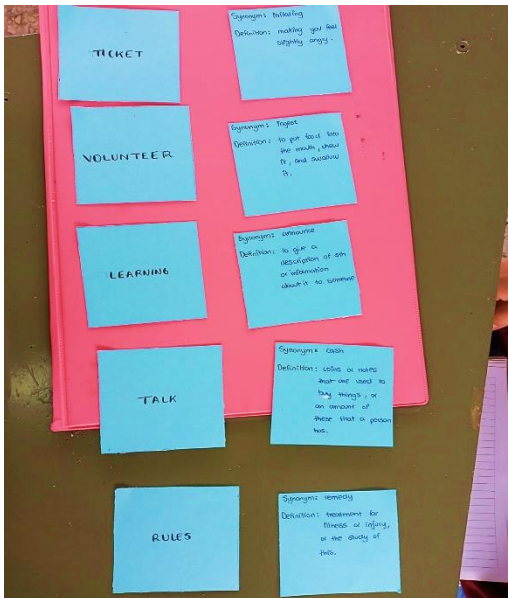 TICKET
Synonym: Irritating
Definition: making you feel
slightly angry.
VOLUNTEER
Synonym: Ingest
Definition: to put food into
the mouth, chew
it, and swallow
it.
LEARNING
Synonym: announce
Definition: to give a
description of sth
or information
about it to someone
TALK
Synonym: cash
Definition: coins or notes
that are used to
buy things, or
an amount of
these that a person
has.
RULES
Synonym: remedy
Definition: treatment for
illness or injury,
or the study of
this.